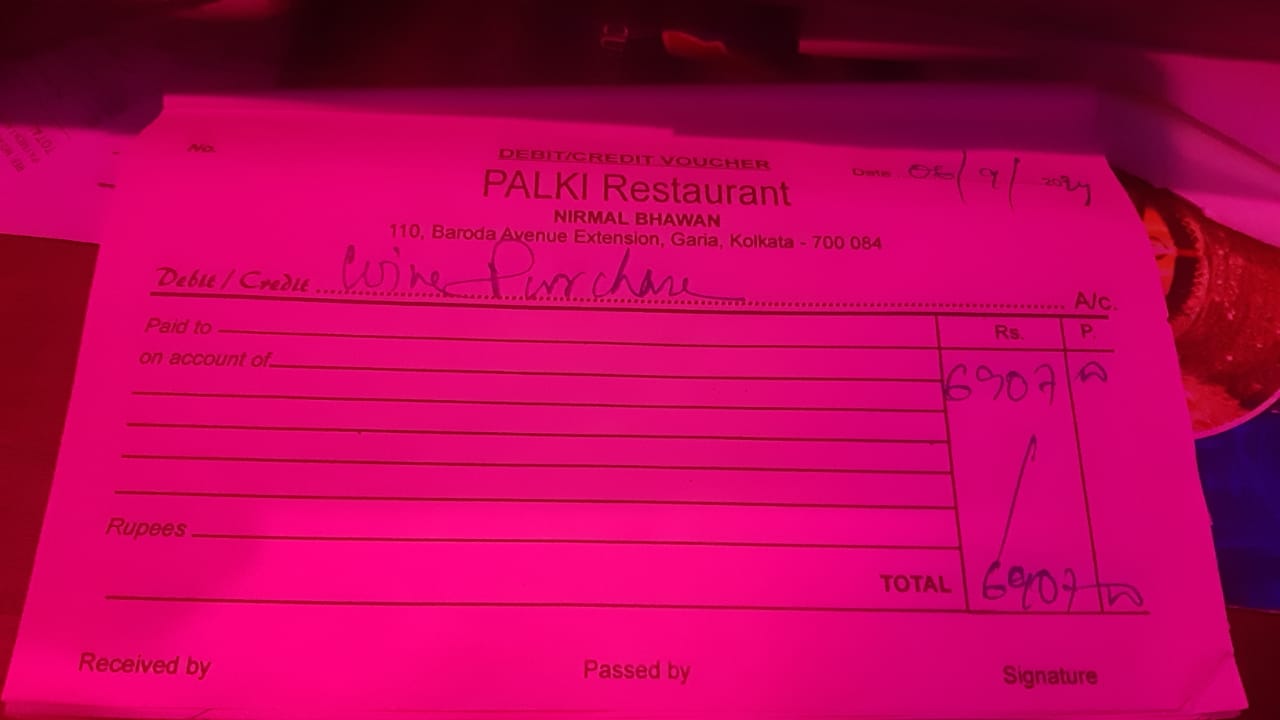 No.
DEBIT/CREDIT VOUCHER
Date 06/9/2024
PALKI Restaurant
NIRMAL BHAWAN
110, Baroda Avenue Extension, Garia, Kolkata - 700 084
Debit / Credit Wine Purchase A/c.
Paid to Rs. P.
on account of
6907 00
Rupees
TOTAL 6907 00
Received by Passed by Signature